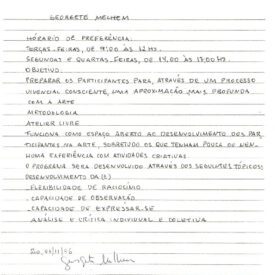 GEORGETE MELHEM
HORÁRIO DE PREFERÊNCIA.
TERÇAS-FEIRAS, DE 9:00 ÀS 12 HS.
SEGUNDAS E QUARTAS-FEIRAS, DE 14:00 ÀS 17:00 HS.
OBJETIVO.
PREPARAR OS PARTICIPANTES PARA, ATRAVÉS DE UM PROCESSO
VIVENCIAL CONSCIENTE, UMA APROXIMAÇÃO MAIS PROFUNDA
COM A ARTE
METODOLOGIA
ATELIER LIVRE
FUNCIONA COMO ESPAÇO ABERTO AO DESENVOLVIMENTO DOS PAR
TICIPANTES NA ARTE, SOBRETUDO OS QUE TENHAM POUCA OU NEN-
HUMA EXPERIÊNCIA COM ATIVIDADES CRIATIVAS
O PROGRAMA SERÁ DESENVOLVIDO ATRAVÉS DOS SEGUINTES TÓPICOS:
DESENVOLVIMENTO DA(E)
. FLEXIBILIDADE DE RACIOCÍNIO
. CAPACIDADE DE OBSERVAÇÃO
. CAPACIDADE DE EXPRESSAR-SE
ANÁLISE E CRÍTICA INDIVIDUAL E COLETIVA
Georgete Melhem